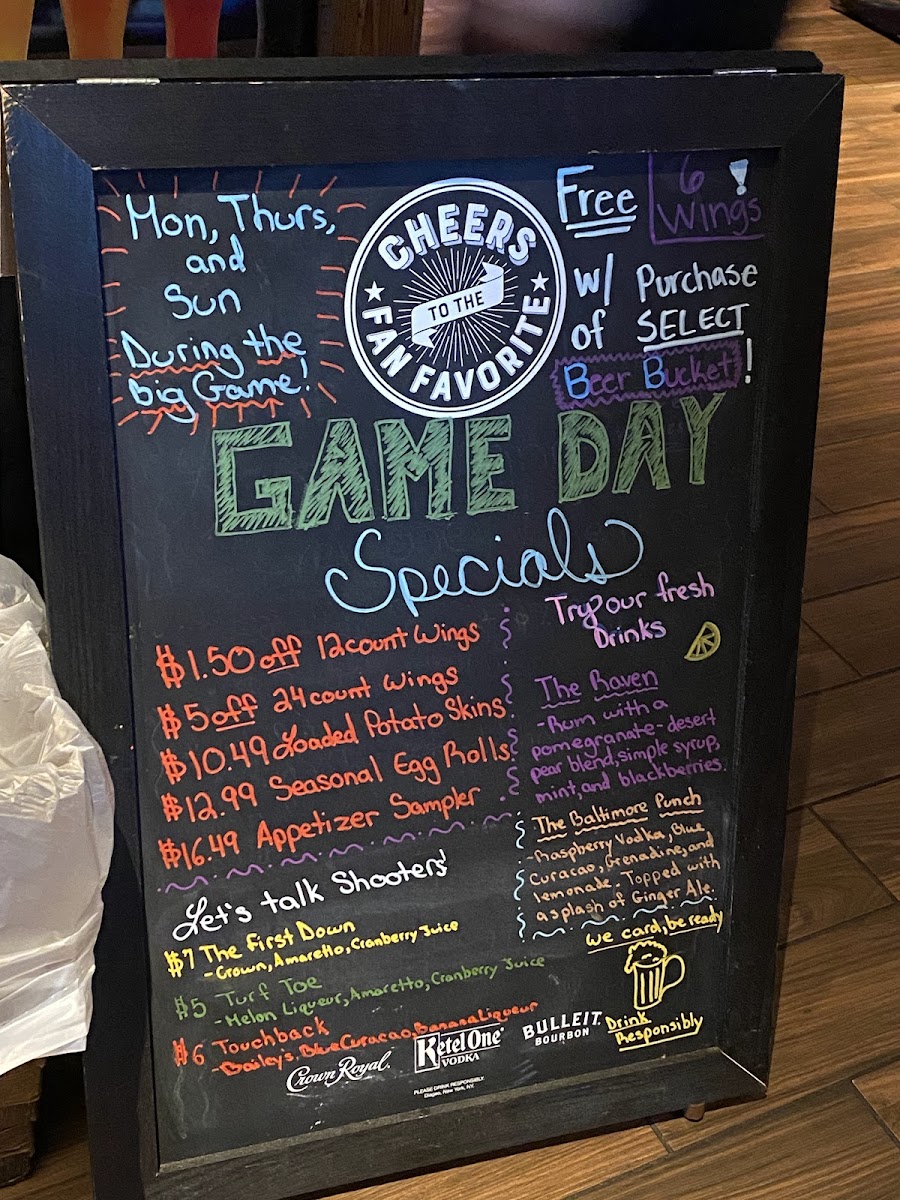 Mon, Thurs,
and
Sun
During the
big Game!
CHEERS
TO THE
FAN FAVORITE
Free 6 Wings!
w/ Purchase
of SELECT
Beer Bucket!
GAME DAY
Specials
$1.50 off 12count Wings
$5 off 24count Wings
$10.49 Loaded Potato Skins
$12.99 Seasonal Egg Rolls
$16.49 Appetizer Sampler
Let's talk Shooters!
$7 The First Down
-Crown, Amaretto, Cranberry Juice
$5 Turf Toe
-Melon Liqueur, Amaretto, Cranberry Juice
$6 Touchback
-Baileys, Blue Curacao, Banana Liqueur
Try our fresh
Drinks
The Raven
-Rum with a
pomegranate-desert
pear blend, simple syrup,
mint, and blackberries.
The Baltimore Punch
-Raspberry Vodka, Blue
Curacao, Grenadine, and
lemonade. Topped with
a splash of Ginger Ale.
we card, be ready
Drink
Responsibly
Crown Royal.
Ketel One
VODKA
BULLEIT.
BOURBON
PLEASE DRINK RESPONSIBLY.
Diageo, New York, NY.